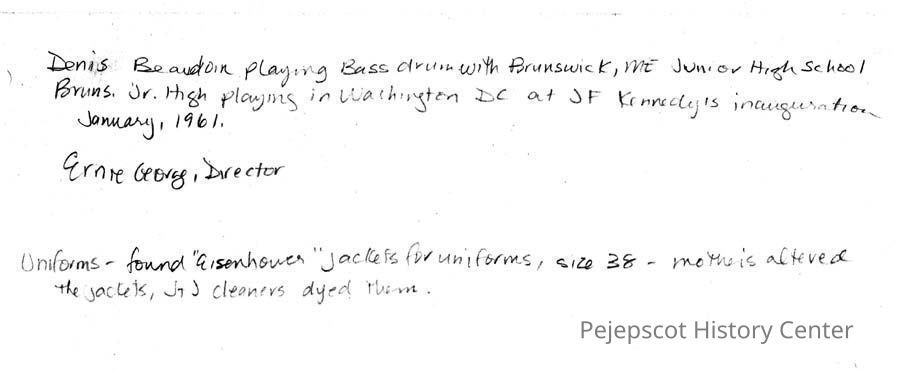 Denis Beaudoin playing Bass drum with Brunswick, ME Junior High School
Bruns. Jr. High playing in Washington DC at JF Kennedy's inauguration
January, 1961.
Ernie George, Director
Uniforms - found "Eisenhower" jackets for uniforms, size 38 - mothers altered
the jackets, J+J cleaners dyed them.
Pejepscot History Center